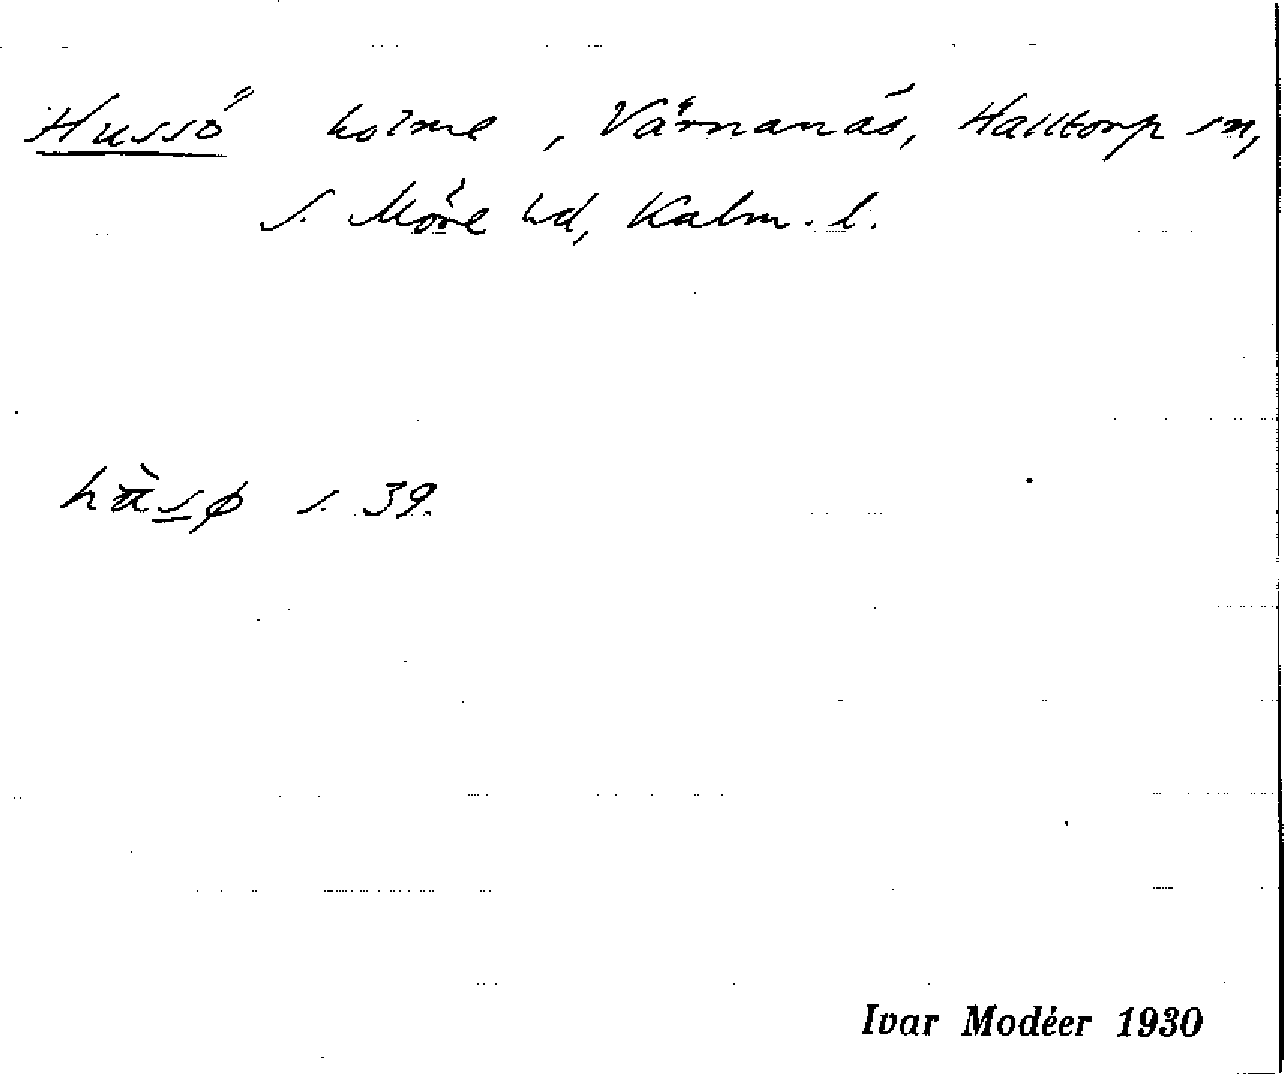 Hussö holme, Värnanäs, Halltorp sn,
S. Möre hd, Kalm. l.
s. 39.
Ivar Modéer 1930